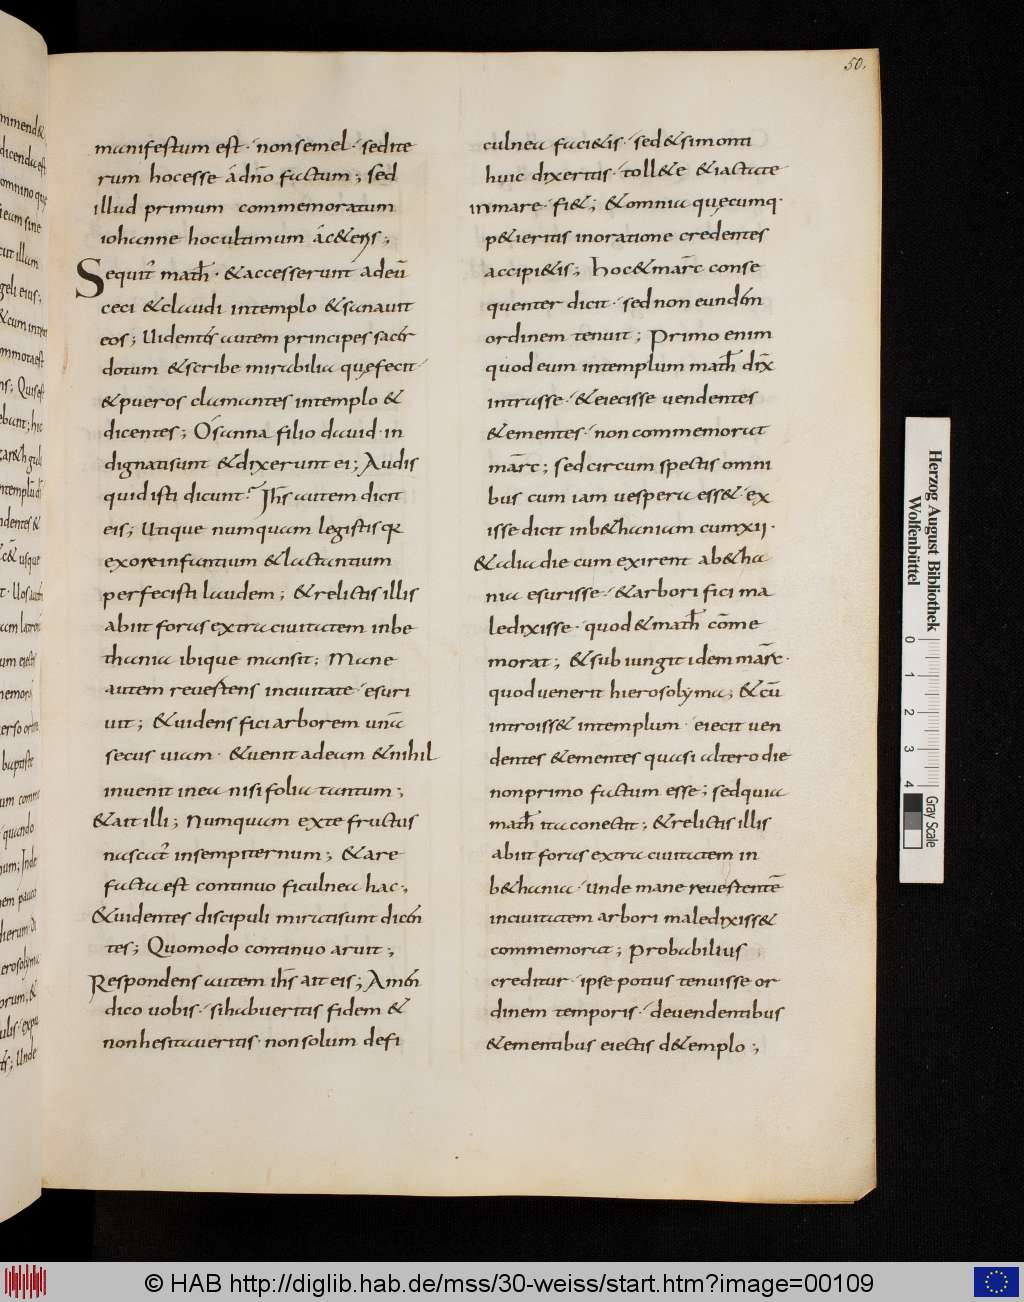 50.
manifestum est · non semel · sed ite
rum hoc esse a dño factum ; sed
illud primum commemoratum
iohanne hoc ultimum ác&eris ;
Sequit̃ math̃ · & accesserunt ad eũ
ceci & claudi in templo & sanavit
eos ; Uidentes autem principes sacer
dotum & scribe mirabilia quę fecit ·
& pueros clamantes in templo &
dicentes ; Osanna filio dauid · in
dignati sunt & dixerunt ei ; Audis
quid isti dicunt? Ih̃s autem dicit
eis ; Utique numquam legistis q̃
ex ore infantium & lactantium
perfecisti laudem ; & relictis illis
abiit foras extra ciuitatem in be
thania ibique mansit ; Mane
autem reuertens in ciuitate · esuri
uit ; & uidens fici arborem unã
secus uiam · & uenit ad eam & nihil
inuenit in ea nisi folia tantum ;
& ait illi ; Numquam ex te fructus
nascat̃ in sempiternum ; & are
facta est continuo ficulnea hac ·,
& uidentes discipuli mirati sunt dicen
tes ; Quomodo continuo aruit ;
Respondens autem ih̃s ait eis ; Amen
dico uobis · si habueritis fidem &
non hesitaueritis · non solum de fi
culnea faci&is · sed & si monti
huic dixeritis · toll& e & iactate
in mare · fi& ; & omnia quęcumq·
p&ieritis in oratione credentes
accipi&is ; hoc & mãrc conse
quenter dicit · sed non eundem
ordinem tenuit ; Primo enim
quod eum in templum math̃ dix̃
intrasse · & eiecisse uendentes
& ementes · non commemorat
mãrc ; sed circumspectis omni
bus cum iam uespera ess& · ex
isse dicit in b&haniam cum xii ·
& alia die cum exirent a b&ha
nia esurisse · & arbori fici ma
ledixisse · quod & math̃ cõme
morat ; & subiungit idem mãrc ·
quod uenerit hierosolyma ; & cũ
introiss& in templum · eiecit uen
dentes & ementes quasi altero die
non primo factum esse ; sed quia
math̃ ita conectit ; & relictis illis
abiit foras extra ciuitatem in
b&hania · unde mane reuertentẽ
in ciuitatem arbori maledixiss&
commemorat ; probabilius
creditur · ipse potius tenuisse or
dinem temporis · de uendentibus
& ementibus eiectis de templo ·,
Herzog August Bibliothek
Wolfenbüttel
0 1 2 3 4
Gray Scale
© HAB http://diglib.hab.de/mss/30-weiss/start.htm?image=00109